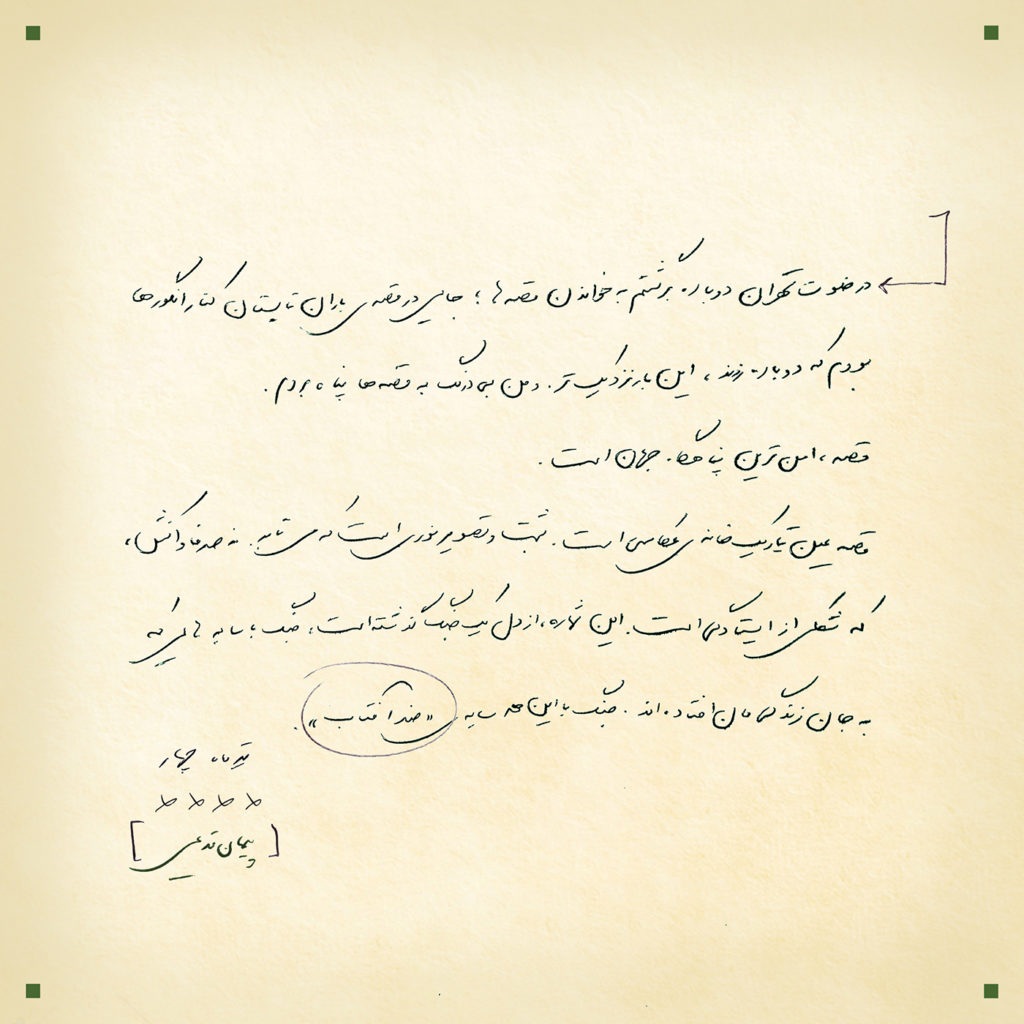 در خلوت تهران دوباره برگشتم به خواندن قصه‌ها؛ جایی در قصه‌ی باران تابستان کنار انگورها
بودم که دوباره زدند، این بار نزدیک‌تر. و من بی‌درنگ به قصه‌ها پناه بردم.
قصه، امن‌ترین پناهگاه جهان است.
قصه عین تاریک‌خانه‌ی عکاسی است. ثبت و تصویر نوری است که می‌تابد. نه صرفا واکنش،
که شکلی از ایستادگی است. این شماره، از دل یک جنگ گذشته است، جنگ با سایه‌هایی که
به جان زندگی‌مان افتاده‌اند. جنگ با این همه سایه‌ی «ضد آفتاب».
تیر ماه چهار
[پیمان قدیمی]